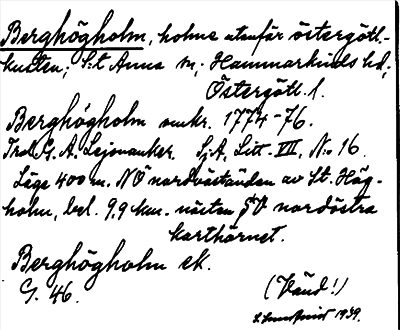 Berghögholm, holme utanför östergötl.-
kusten; S:t Anna sn; Hammarkinds hd;
Östergötl. l.
Berghögholm omkr. 1774-76.
Trol. G. A. Lejonanker. SjA, Litt. VII, No 16.
Läge 400 m. NÖ nordväständan av St. Hög-
holm, bel. 9,9 km. nästan SV nordöstra
karthörnet.
Berghögholm ek.
G. 46.
(Vänd!)
1939.